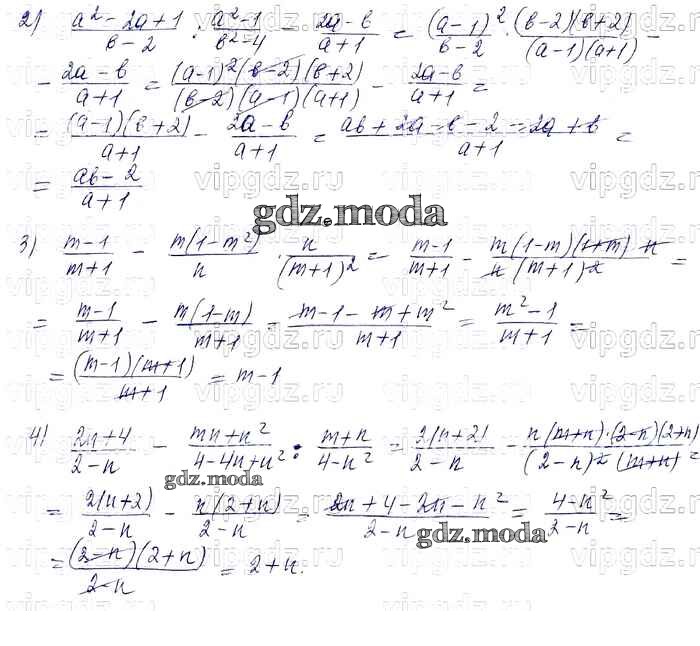 2) (a² - 2a + 1)/(в - 2) : (a² - 1)/(в² - 4) - (2a - в)/(a + 1) = (a - 1)²/(в - 2) · (в - 2)(в + 2)/((a - 1)(a + 1)) -
- (2a - в)/(a + 1) = (a - 1)²(в - 2)(в + 2)/((в - 2)(a - 1)(a + 1)) - (2a - в)/(a + 1) =
= (a - 1)(в + 2)/(a + 1) - (2a - в)/(a + 1) = (aв + 2a - в - 2 - 2a + в)/(a + 1) =
= (aв - 2)/(a + 1)
gdz.moda
3) (m - 1)/(m + 1) - m(1 - m²)/n · n/(m + 1)² = (m - 1)/(m + 1) - m(1 - m)(1 + m) n/(n (m + 1)²) =
= (m - 1)/(m + 1) - m(1 - m)/(m + 1) = (m - 1 - m + m²)/(m + 1) = (m² - 1)/(m + 1) =
= (m - 1)(m + 1)/(m + 1) = m - 1
4) (2n + 4)/(2 - n) - (mn + n²)/(4 - 4n + n²) : (m + n)/(4 - n²) = 2(n + 2)/(2 - n) - n(m + n)·(2 - n)(2 + n)/((2 - n)²(m + n)) =
gdz.moda
= 2(n + 2)/(2 - n) - n(2 + n)/(2 - n) = (2n + 4 - 2n - n²)/(2 - n) = (4 - n²)/(2 - n) =
gdz.moda
= (2 - n)(2 + n)/(2 - n) = 2 + n.
vipgdz.ru